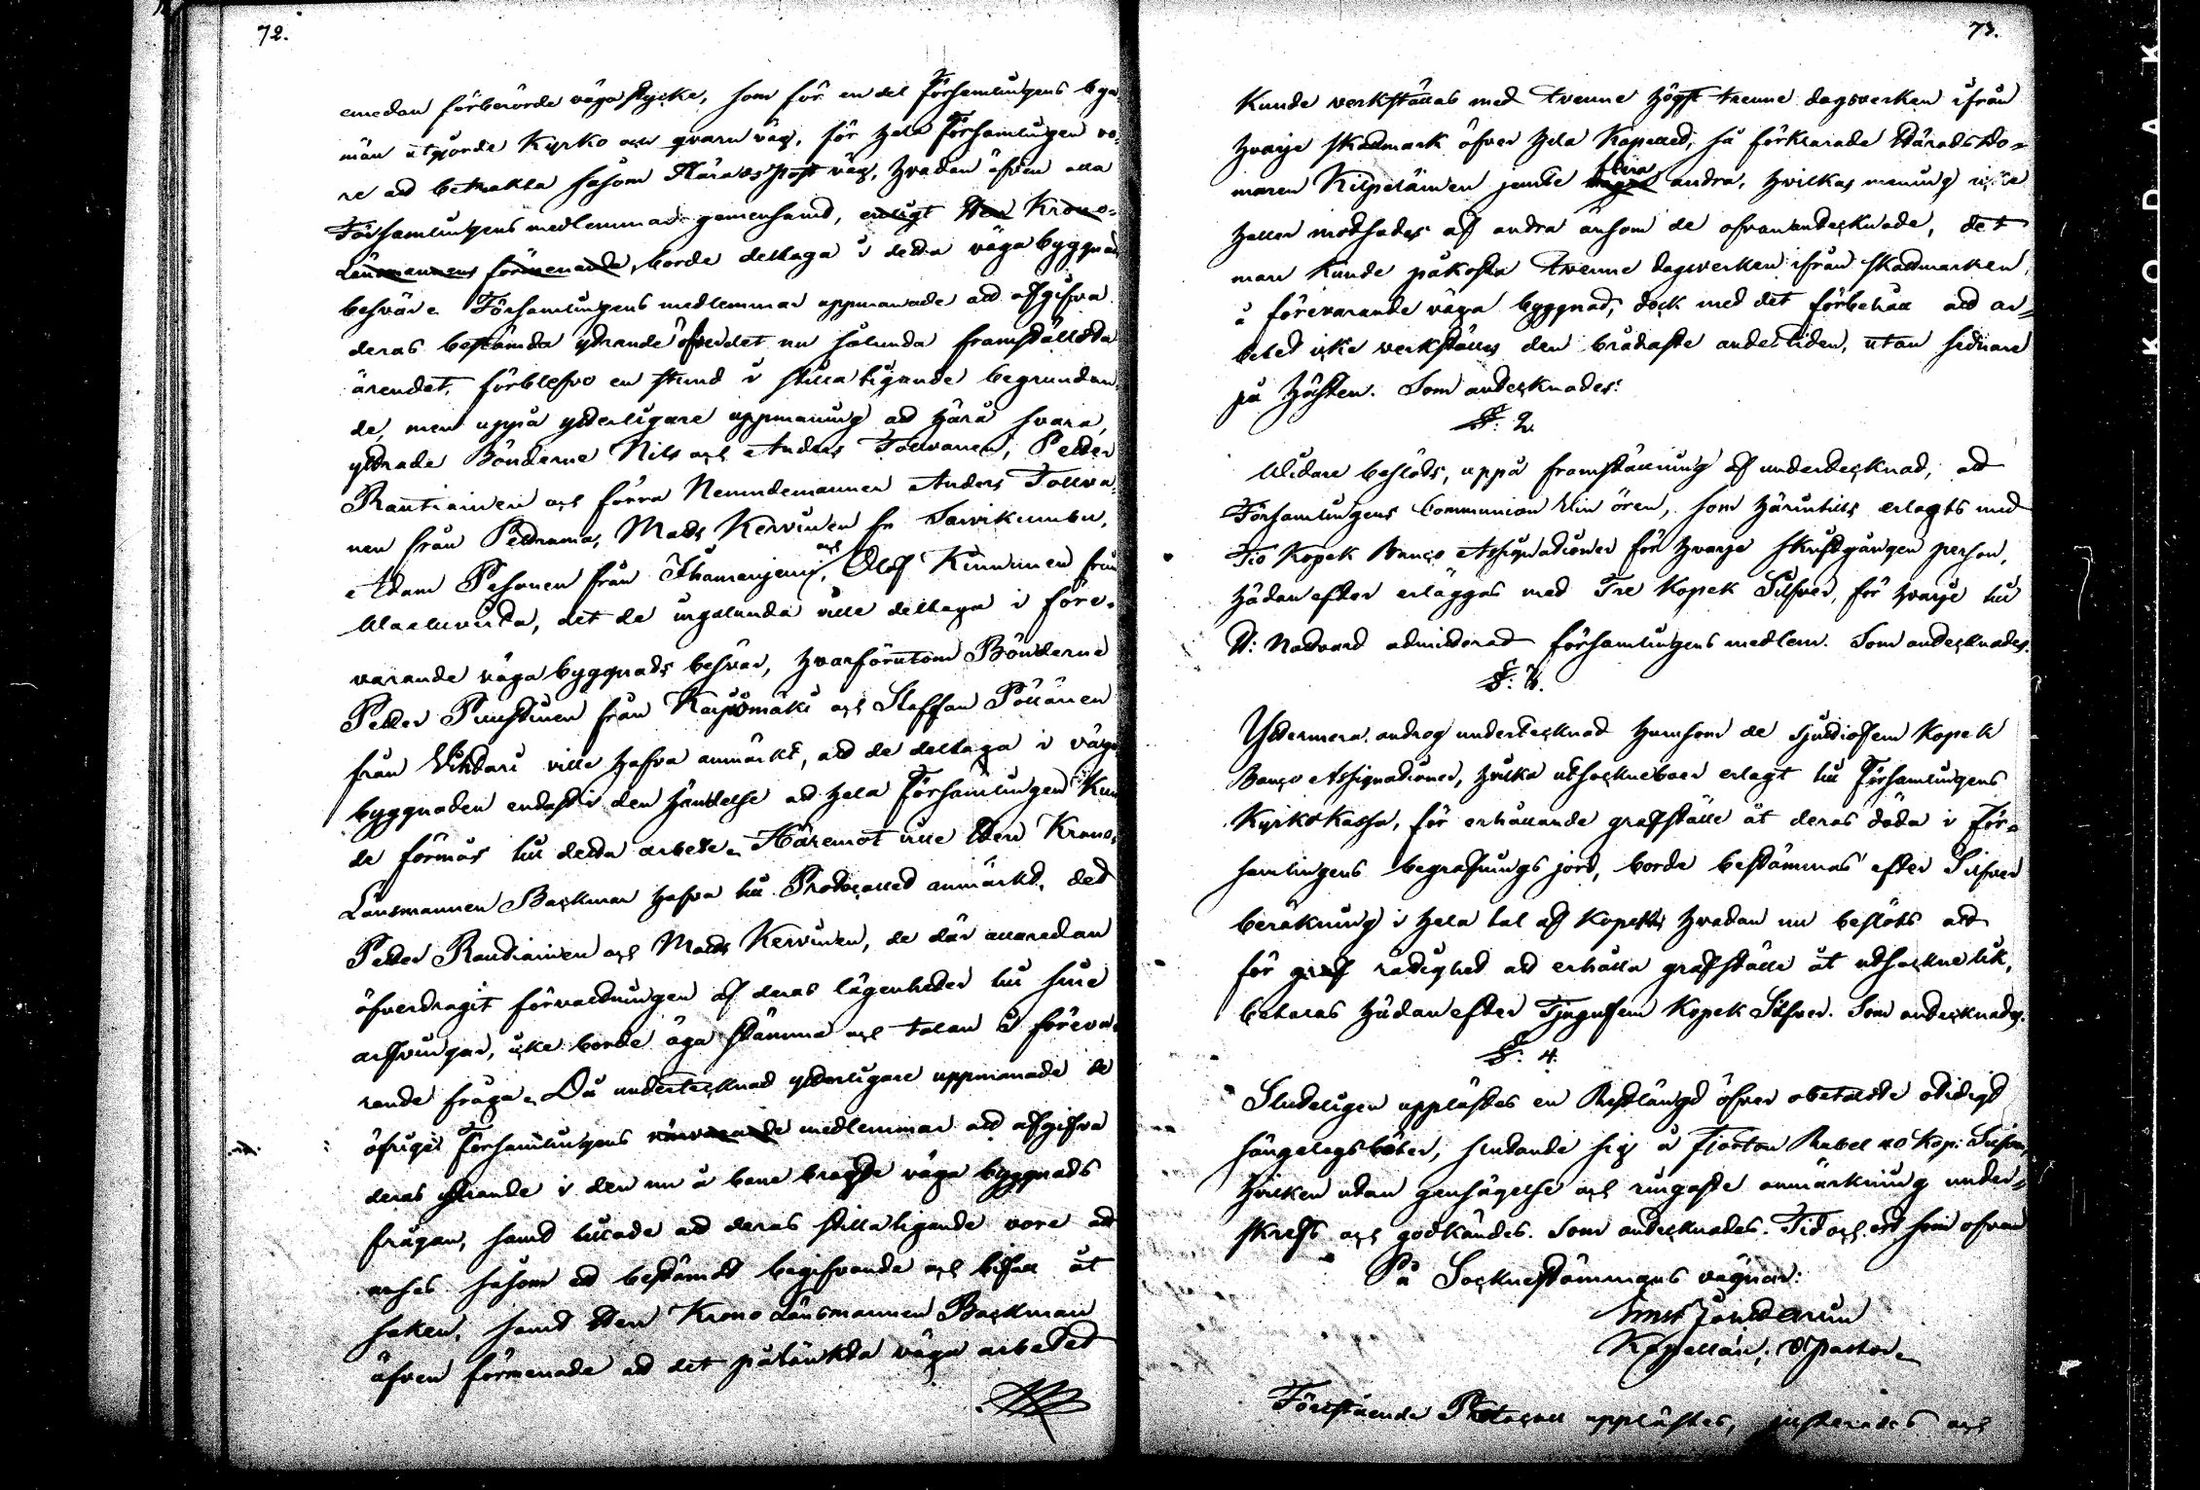 72.
emedan förberörde väga stycke, som för en del Församlingens bya
män utgjorde Kyrko och qvarn väg, för hela Församlingen vo-
re att betrakta såsom Härads Post väg, hvadan äfven alla
Församlingens medlemmar gemensamt, enligt Herr Krono-
Länsmannens förmenande, borde deltaga i detta väga byggnad
besvär. Församlingens medlemmar uppmanade att afgifva
deras bestämda yttrande öfver det nu sålunda framställda
ärendet, förblefvo en stund i stilla tigande begrundan-
de, men uppå ytterligare uppmaning att härå svara,
yttrade Bönderne Nils och Anders Tolvanen, Petter
Rautiainen och förra Nemndemannen Anders Tolva-
nen från Petrama, Matts Kervinen fr Sarvikumbu,
Adam Pesonen från Thamenjemi, och Olof Kinnunen från
det de ingalunda ville deltaga i före-
varande väga byggnads besvär, hvarförutom Bönderne
Petter Puustinen från Karjomäki och Staffan Pöllänen
från Vihtari ville hafva anmärkt, att de deltaga i väga
byggnaden endast i den händelse att hela Församlingen kun-
de förmås till detta arbete. Häremot ville Herr Krono-
Länsmannen Backman hafva till Protocollet anmärkt, det
Petter Rautiainen och Matts Kervinen, de där allaredan
öfverdragit förvaltningen af deras lägenheter till sine
arfvingar, icke borde äga stämma och talan i föreva-
rande fråga. Då undertecknad ytterligare uppmanade de
öfrige Församlingens närvarande medlemmar att afgifva
deras yttrande i den nu å bane bragte väga byggnads
frågan, samt tillade att deras stilla tigande vore att
anses såsom ett bestämdt begifvande och bifall åt
saken, samt Herr Krono Länsmannen Backman
äfven förmenade att det påtänkta väga arbetet
73.
kunde verkställas med tvenne högst trenne dagsverken ifrån
hvarje skattmark öfver hela Kapellet; så förklarade Härads Do-
maren Kilpeläinen jemte flera andra, hvilkas mening icke
heller motsades af andra än som de ofvanantecknade, det
man kunde påkosta tvenne dagsverken ifrån skattmarken,
å förevarande väga byggnad, dock med det förbehåll att ar-
betet icke verkställes den brådaste andestiden, utan sednare
på hösten. Som antecknades:
§: 2.
Vidare beslöts, uppå framställning af undertecknad, att
Församlingens Communion Vin ören, som härintills erlagts med
Tio Kopek Banco Assignationer för hvarje skriftgången person,
hädanefter erlägges med Tre Kopek Silfver, för hvarje till
H: Nattvard admitterad församlingens medlem. Som antecknades.
§: 3.
Yttermera androg undertecknad hurusom de sjuttiofem Kopek
Banco Assignationer, hvilka utsockneboer erlagt till Församlingens
Kyrkokassa, för erhållande grafställe åt deras döda i För-
samlingens begrafnings jord, borde bestämmas efter Silfver
beräkning i hela tal af Kopek; hvadan nu beslöts att
för graf rättighet att erhålla grafställe åt utsockne lik,
betalas hädanefter Tjugufem Kopek Silfver. Som antecknades.
§: 4.
Sluteligen upplästes en Restlängd öfver obetalde otidigt
sängelagsböter, slutande sig å Fjorton Rubel 40 Kop: Silfver,
hvilken utan gensägelse och ringaste anmärkning under-
skrefs och godkändes. Som antecknades. Tid och ort som ofvan
På Sockne stämmans vägnar:
Kapellan, V Pastor.
Förestående Protocoll upplästes, justerades och
KODAK